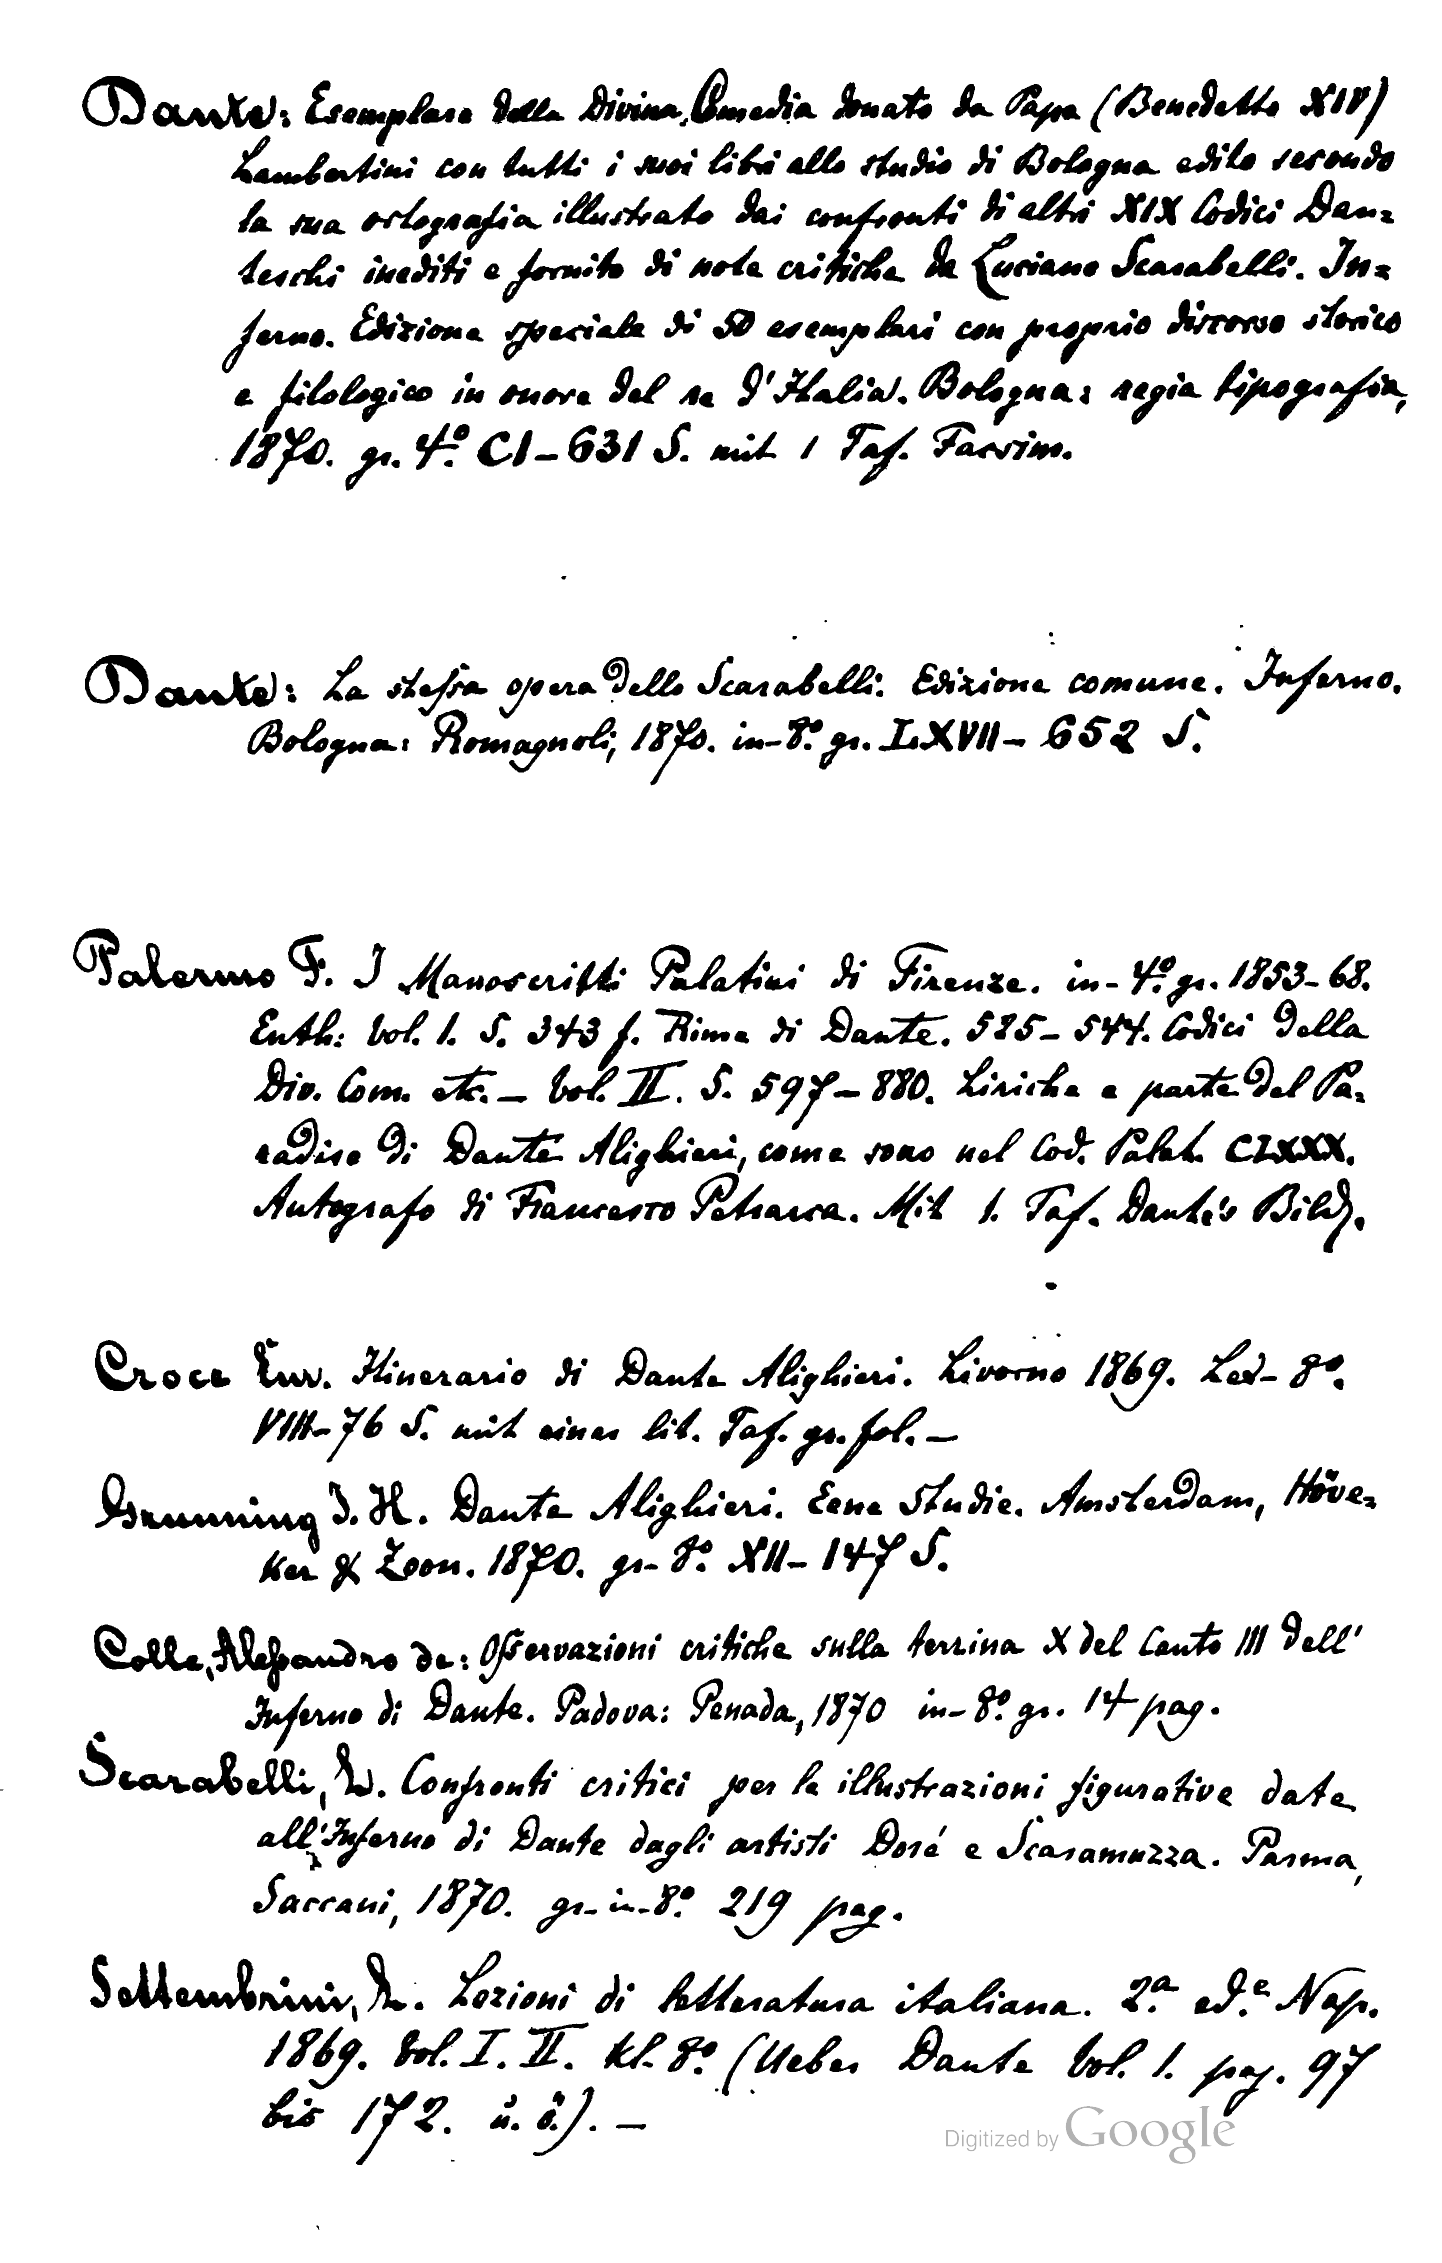 Dante: Esemplare della Divina Comedia donato da Papa (Benedetto XIV)
Lambertini con tutti i suoi libri allo studio di Bologna edito secondo
la sua ortografia illustrato dai confronti di altri XIX Codici Dan=
teschi inediti e fornito di note critiche da Luciano Scarabelli. In=
ferno. Edizione speciale di 50 esemplari con proprio discorso storico
e filologico in onore del re d'Italia. Bologna: regia tipografia,
1870. gr. 4º. CI-631 S. mit 1 Taf. Facsim.
Dante: La steſsa opera dello Scarabelli. Edizione comune. Inferno.
Bologna: Romagnoli, 1870. in-8º. gr. LXVII-652 S.
Palermo F. I Manoscritti Palatini di Firenze. in-4º. gr. 1853-68.
Enth: vol. 1. S. 343 f. Rime di Dante. 525-544. Codici della
Div. Com. etc. - Vol. II. S. 597-880. Liriche e parte del Pa=
radiso di Dante Alighieri, come sono nel Cod. Palat. CLXXX.
Autografo di Francesco Petrarca. Mit 1. Taf. Dante's Bild.
Croce Enr. Itinerario di Dante Alighieri. Livorno 1869. Lex-8º.
VIII-76 S. mit einer lit. Taf. gr. fol. -
Gunning J. H. Dante Alighieri. Eene Studie. Amsterdam, Höve=
ker & Zoon. 1870. gr-8º. XII-147 S.
Colle, Aleſsandro de: Oſservazioni critiche sulla terzina X del Canto III dell'
Inferno di Dante. Padova: Penada, 1870 in-8º. gr. 14 pag.
Scarabelli, L. Confronti critici per le illustrazioni figurative date
all'Inferno di Dante dagli artisti Doré e Scaramuzza. Parma,
Saccani, 1870. gr-in-8º. 219 pag.
Settembrini, L. Lezioni di letteratura italiana. 2ª. ed.e Nap.
1869. Vol. I. II. kl. 8º. (Ueber Dante Vol. 1. pag. 97
bis 172. u. ö.). -
Digitized by Google